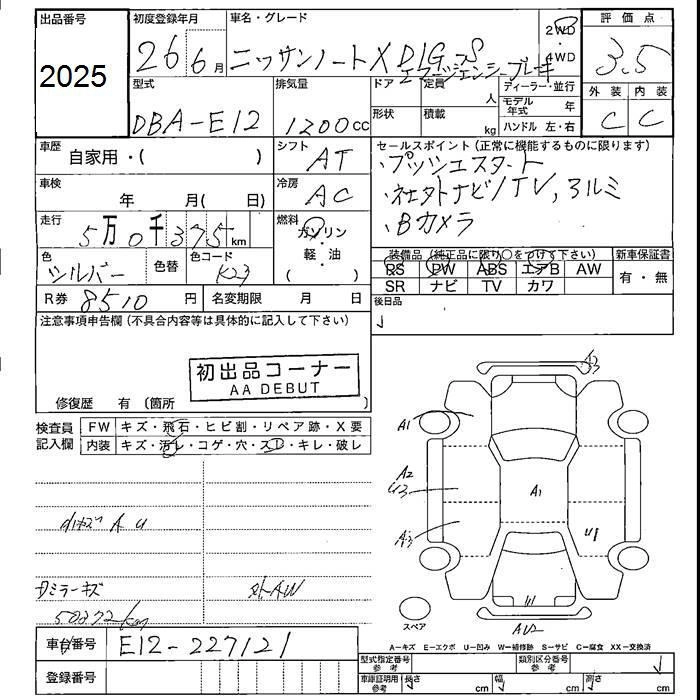 出品番号
2025
初度登録年月
26 6月
車名・グレード
ニッサンノート X DIG-S
エマージェンシーブレーキ
2WD
・
4WD
評価点
3.5
外装 内装
C C
型式
DBA-E12
排気量
1200cc
ドア 定員
人
形状 積載
kg
ディーラー・並行
モデル年式 年
ハンドル 左・右
車歴
自家用・( )
シフト
AT
車検
年 月( 日)
冷房
AC
走行
5万0千375km
燃料
ガソリン
・
軽油
( )
色
シルバー
色替
色コード
K23
R券 8510円
名変期限 月 日
セールスポイント(正常に機能するものに限ります)
・プッシュスタート
・社外ナビ/TV, アルミ
・Bカメラ
装備品(純正品に限り○をつけて下さい)
PS PW ABS エアB AW
SR ナビ TV カワ
新車保証書
有・無
後日品
注意事項申告欄(不具合内容等は具体的に記入して下さい)
初出品コーナー
AA DEBUT
修復歴 有(箇所 )
検査員記入欄
FW キズ・飛石・ヒビ割・リペア跡・X要
内装 キズ・汚レ・コゲ・穴・スレ・キレ・破レ
A U
ミラーキズ
外AW
50372km
A3
A1
A2
U3
A3
A1
U1
AU2
スペア
車台番号 E12-227121
登録番号
A−キズ E−エクボ U−凹み W−補修跡 S−サビ C−腐食 XX−交換済
型式指定番号 参考
類別区分番号 参考
車庫証明用 参考 長さ cm 幅 cm 高さ cm